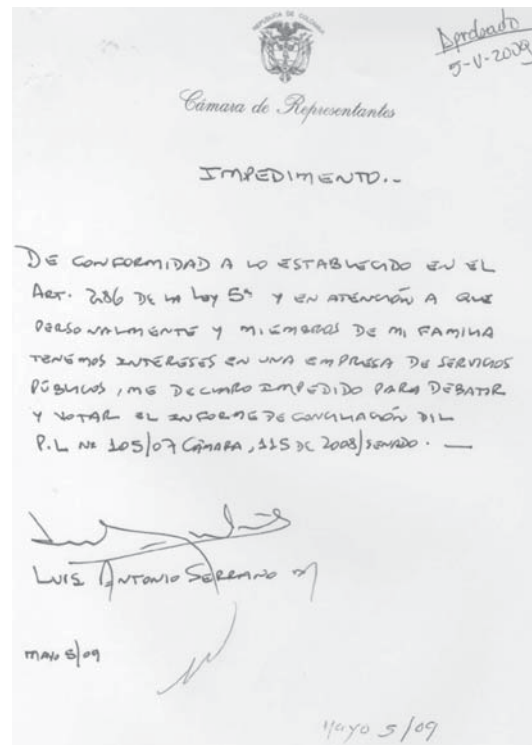 Aprobado
5-V-2009
REPUBLICA DE COLOMBIA
Cámara de Representantes
IMPEDIMENTO.-
DE CONFORMIDAD A LO ESTABLECIDO EN EL
ART. 286 DE LA LEY 5ª Y EN ATENCIÓN A QUE
PERSONALMENTE Y MIEMBROS DE MI FAMILIA
TENEMOS INTERESES EN UNA EMPRESA DE SERVICIOS
PÚBLICOS, ME DECLARO IMPEDIDO PARA DEBATIR
Y VOTAR EL INFORME DE CONCILIACIÓN DIL
P.L Nº 105/07 CÁMARA, 115 DE 2008/SENADO. —
LUIS ANTONIO SERRANO M
MAYO 5/09
Mayo 5/09